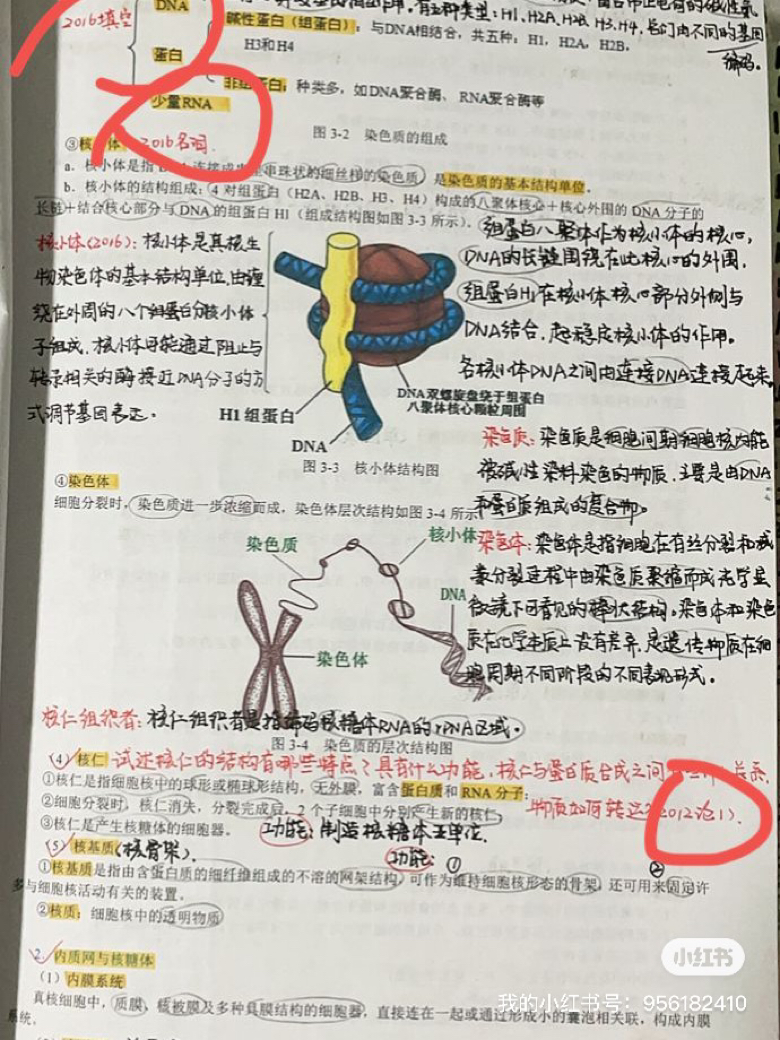 2016填空
DNA
有5种类型：H1, H2A, H2B, H3, H4, 它们由不同的基因
编码。
碱性蛋白（组蛋白）：与DNA相结合，共五种：H1，H2A，H2B，
H3和H4
蛋白
非组蛋白：种类多，如DNA聚合酶、RNA聚合酶等
少量RNA
图 3-2 染色质的组成
③核 体 2016名词.
a. 核小体是指 串珠状的细丝样的染色质 是染色质的基本结构单位。
b. 核小体的结构组成：4 对组蛋白（H2A、H2B、H3、H4）构成的八聚体核心＋核心外围的 DNA 分子的
长链＋结合核心部分与 DNA 的组蛋白 H1（组成结构图如图 3-3 所示）。
核小体(2016)：核小体是真核生
物染色体的基本结构单位，由缠
绕在外周的八个组蛋白分核小体
子组成，核小体可能通过阻止与
转录相关的酶接近DNA分子的方
式调节基因表达。
组蛋白八聚体作为核小体的核心，
DNA的长链围绕在此核心的外围，
组蛋白H1在核小体核心部分外侧与
DNA结合，起稳定核小体的作用。
各核小体DNA之间由连接DNA连接起来
DNA双螺旋盘绕于组蛋白
八聚体核心颗粒周围
H1 组蛋白
DNA
图 3-3 核小体结构图
染色质：染色质是细胞间期细胞核内能
被碱性染料染色的物质，主要是由DNA
和蛋白质组成的复合物。
④染色体
细胞分裂时，染色质进一步浓缩而成，染色体层次结构如图 3-4 所示
染色体：染色体是指细胞在有丝分裂和减
数分裂过程中由染色质聚缩而成光学显
微镜下可看见的棒状结构。染色体和染色
质在化学本质上没有差异，是遗传物质在细
胞周期不同阶段的不同表现形式。
染色质
核小体
DNA
染色体
核仁组织者：核仁组织者是指编码核糖体RNA的rDNA区域。
图 3-4 染色质的层次结构图
（4）核仁 试述核仁的结构有哪些特点？具有什么功能，核仁与蛋白质合成之间 关系.
①核仁是指细胞核中的球形或椭球形结构，无外膜，富含蛋白质和 RNA 分子；
物质如何转运？(2012论1).
②细胞分裂时，核仁消失，分裂完成后，2 个子细胞中分别产生新的核仁；
③核仁是产生核糖体的细胞器。 功能：制造核糖体亚单位.
（5）核基质(核骨架). 功能： ① ②
①核基质是指由含蛋白质的细纤维组成的不溶的网架结构，可作为维持细胞核形态的骨架，还可用来固定许
多与细胞核活动有关的装置。
②核质：细胞核中的透明物质
2. 内质网与核糖体
（1）内膜系统
真核细胞中，质膜，核被膜及多种具膜结构的细胞器，直接连在一起或通过形成小的囊泡相关联，构成内膜
系统。
小红书
我的小红书号：956182410